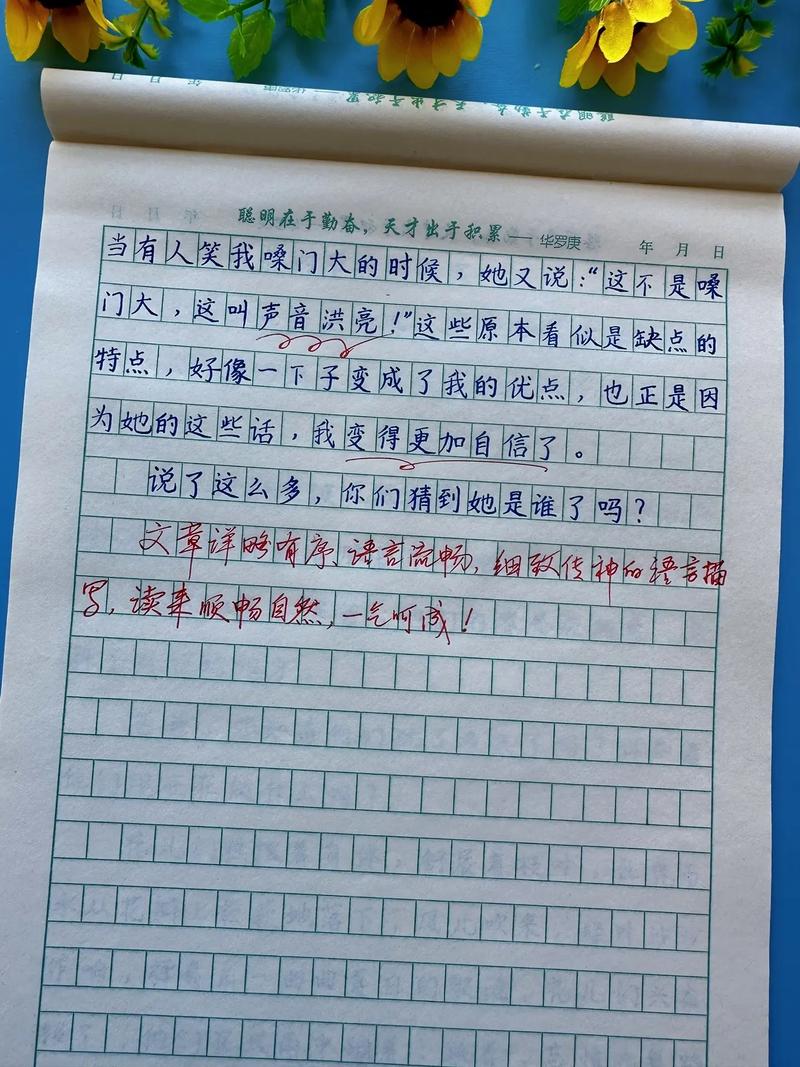 聪明在于勤奋，天才出于积累——华罗庚 年 月 日
当有人笑我嗓门大的时候，她又说：“这不是嗓
门大，这叫声音洪亮！”这些原本看似是缺点的
特点，好像一下子变成了我的优点，也正是因
为她的这些话，我变得更加自信了。
说了这么多，你们猜到她是谁了吗？
文章详略有序、语言流畅，细致传神的语言描
写，读来顺畅自然，一气呵成！